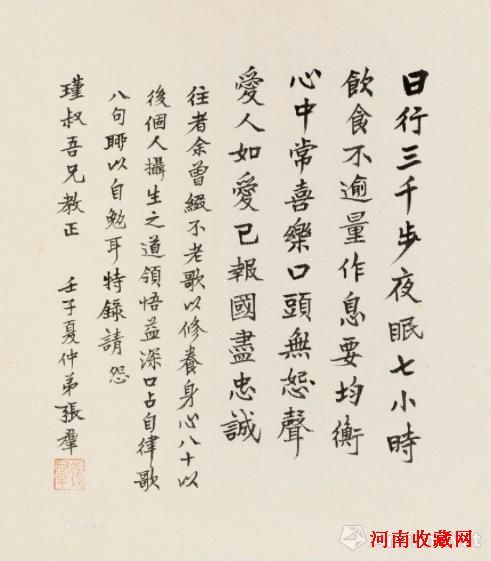 日行三千步夜眠七小時
飲食不逾量作息要均衡
心中常喜樂口頭無怨聲
愛人如愛己報國盡忠誠
往者余曾綴不老歌以修養身心八十以
後個人攝生之道領悟益深口占自律歌
八句聊以自勉耳特錄請
瑾叔吾兄教正 壬子夏仲弟張羣
河南收藏网